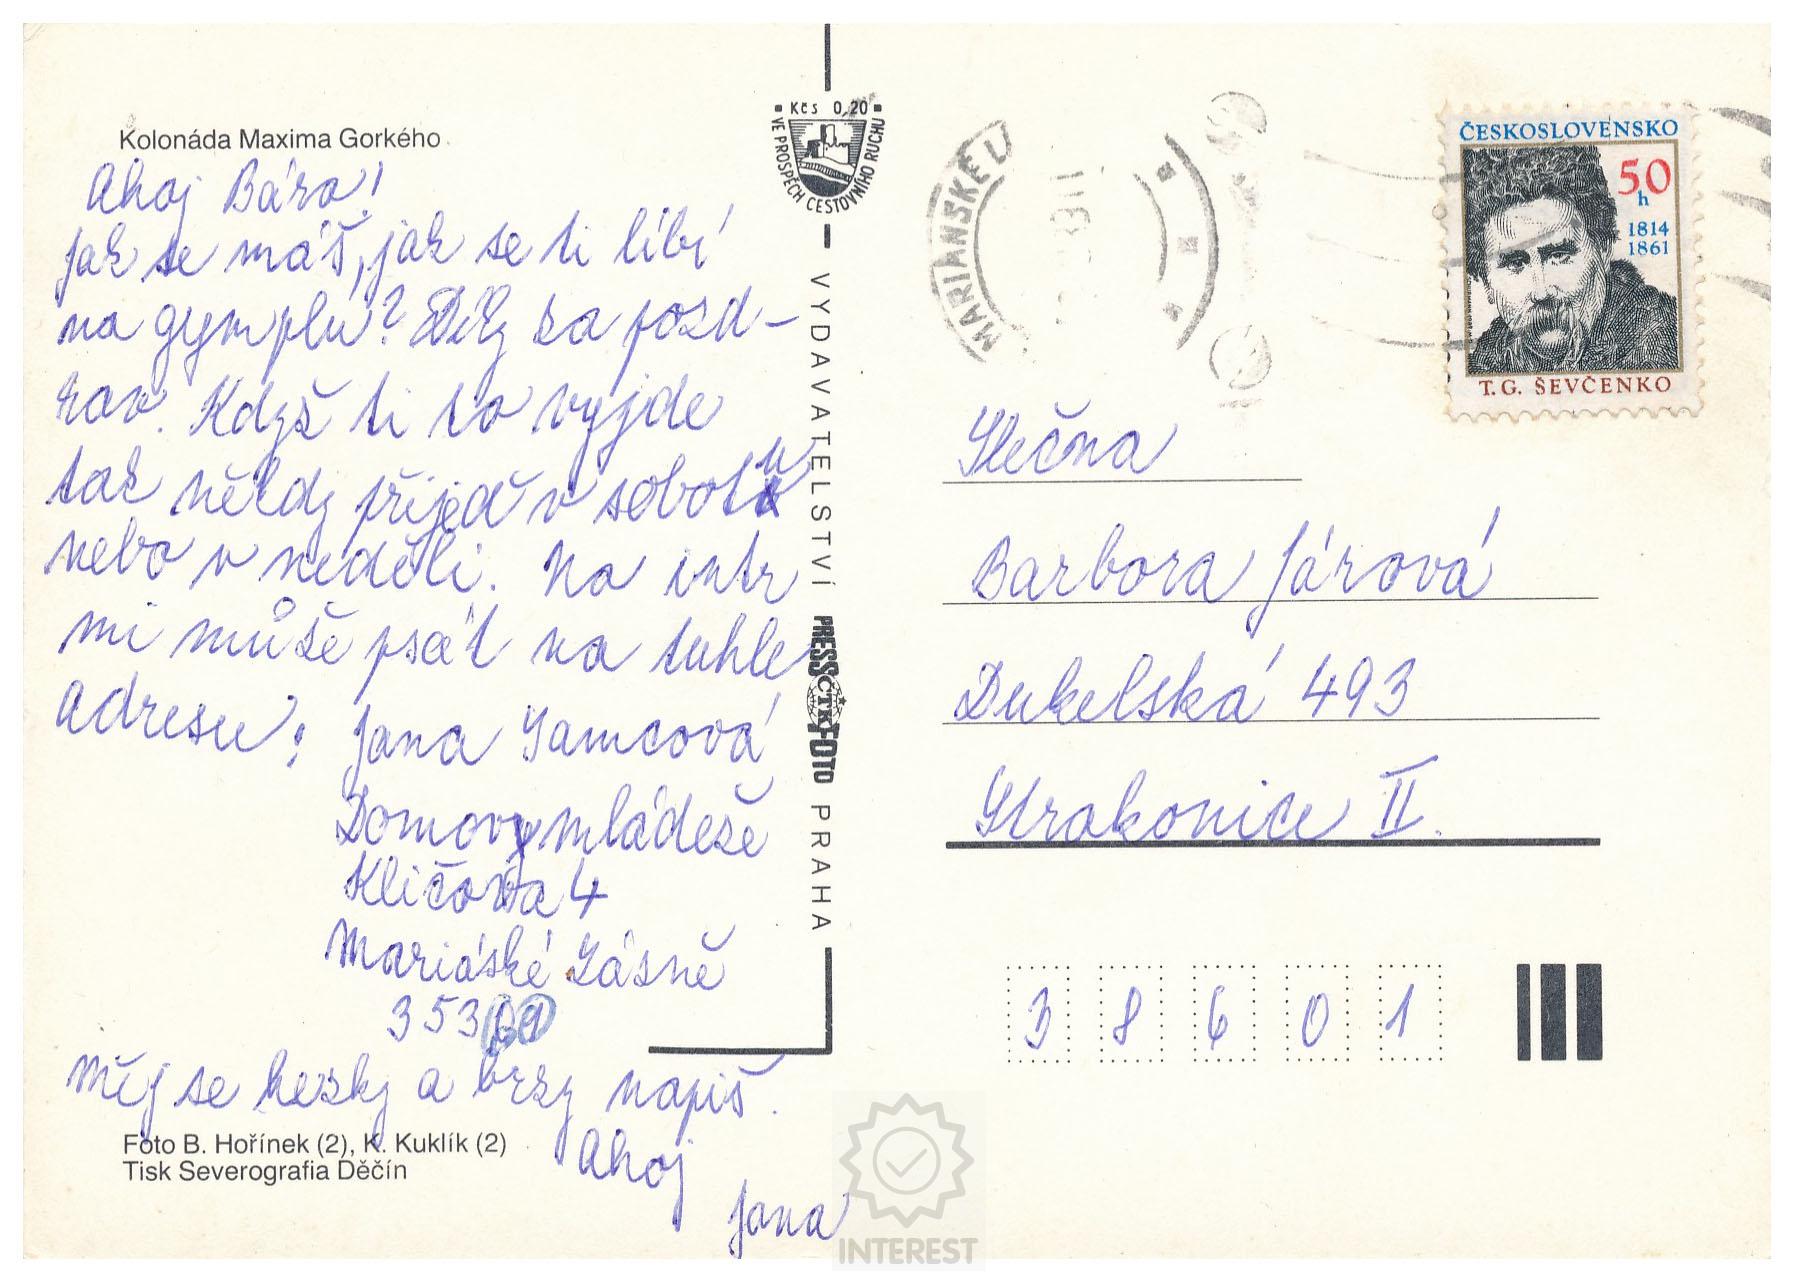 Kolonáda Maxima Gorkého
Ahoj Báro!
Jak se máš, jak se ti líbí
na gymplu? Díky za pozd-
rav. Když ti to vyjde
tak někdy přijeď v sobotu
nebo v neděli. Na intr
mi může psát na tuhle
adresu:
Jana Samcová
Domov mládeže
Klíčova 4
Mariáské Lásně
353 01
Měj se hezky a brzy napiš.
Ahoj
Jana
Foto B. Hořínek (2), K. Kuklík (2)
Tisk Severografia Děčín
Kčs 0,20
VE PROSPĚCH CESTOVNÍHO RUCHU
VYDAVATELSTVÍ PRESSFOTO PRAHA
ČTK
MARIÁNSKÉ L
ČESKOSLOVENSKO
50
h
1814
1861
T.G. ŠEVČENKO
Slečna
Barbora Járová
Dukelská 493
Strakonice II.
3 8 6 0 1
INTEREST